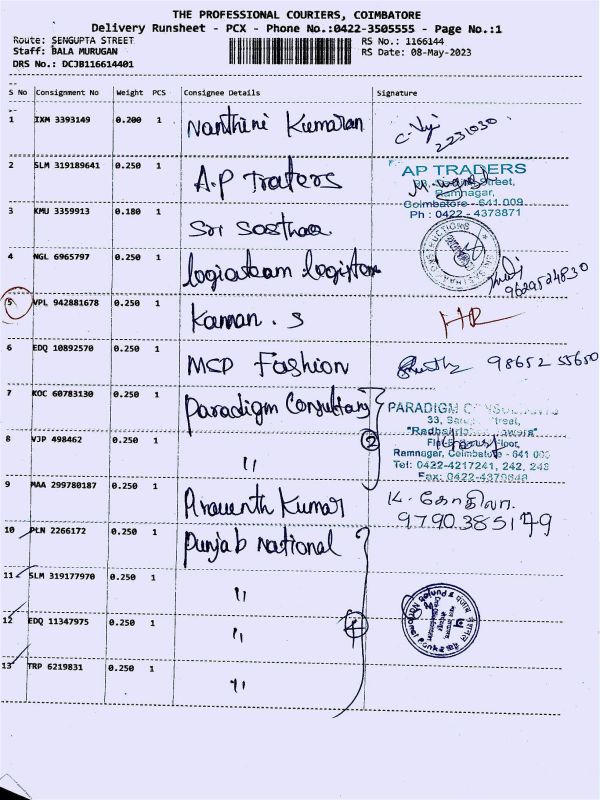 THE PROFESSIONAL COURIERS, COIMBATORE
Delivery Runsheet - PCX - Phone No.:0422-3505555 - Page No.:1
Route: SENGUPTA STREET RS No.: 1166144
Staff: BALA MURUGAN RS Date: 08-May-2023
DRS No.: DCJB116614401
S No Consignment No Weight PCS Consignee Details Signature
1 IXM 3393149 0.200 1 Nanthini Kumaran 2231030
2 SLM 319189641 0.250 1 A.P Traters
AP TRADERS
Street,
Ramnagar,
Coimbatore - 641 009
Ph : 0422 - 4378871
3 KMU 3359913 0.180 1 Sri Sosthaa
4 NGL 6965797 0.250 1 9629524830
5 VPL 942881678 0.250 1 Kannan . S
6 EDQ 10892570 0.250 1 MCP Fashion 98652 55650
7 KOC 60783130 0.250 1 Paradigm Consultancy
8 VJP 498462 0.250 1 〃 2
PARADIGM CONSULTANTS
33, Street,
Floor,
Ramnagar, Coimbatore - 641 009
Tel: 0422-4217241, 242, 243
Fax: 0422-4379648
9 MAA 299780187 0.250 1 Araventh Kumar K. கோகிலா.
9790385179
10 PLN 2266172 0.250 1 Punjab National
11 SLM 319177970 0.250 1 〃
12 EDQ 11347975 0.250 1 〃 4
13 TRP 6219831 0.250 1 〃